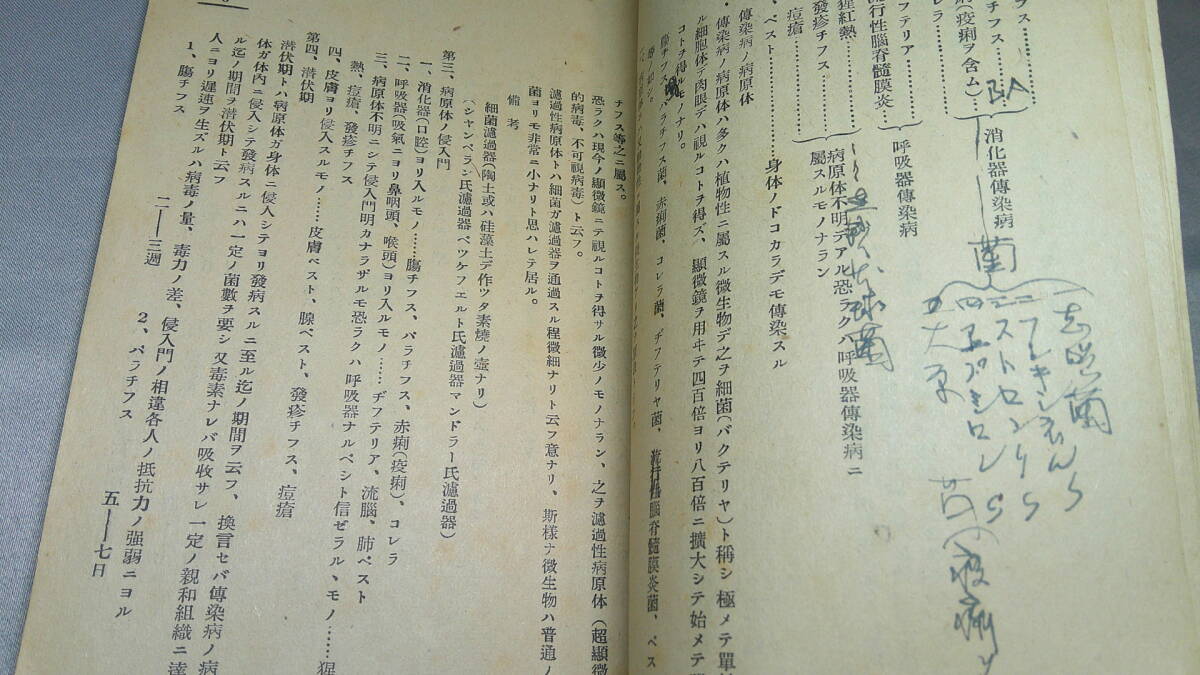 ラフス……
チフス……
病(疫痢ヲ含ム)
レラ……
消化器傳染病
菌
志賀菌
フレキシネル
ストロング
四
大原菌(疫痢)
フテリア……
流行性腦脊髓膜炎
呼吸器傳染病
猩紅熱……
發疹チフス……
痘瘡……
病原体不明デアル恐ラクハ呼吸器傳染病ニ
屬スルモノナラン
球菌
、ペスト……身体ノドコカラデモ傳染スル
傳染病ノ病原体
傳染病ノ病原体ハ多クハ植物性ニ屬スル微生物デ之ヲ細菌(バクテリヤ)ト稱シ極メテ單
ル細胞体デ肉眼デハ視ルコトヲ得ズ、顯微鏡ヲ用ヰテ四百倍ヨリ八百倍ニ擴大シテ始メテ
コトヲ得ルモノナリ。
腸チフス菌、パラチフス菌、赤痢菌、コレラ菌、ヂフテリヤ菌、流行性腦脊髓膜炎菌、ペス
チフス等之ニ屬ス。
恐ラクハ現今ノ顯微鏡ニテ視ルコトヲ得サル微少ノモノナラン、之ヲ濾過性病原体(超顯微
的病毒、不可視病毒)ト云フ。
濾過性病原体トハ細菌ガ濾過器ヲ通過スル程微細ナリト云フ意ナリ、斯樣ナ微生物ハ普通ノ
菌ヨリモ非常ニ小ナリト思ハレテ居ル。
備考
細菌濾過器(陶土或ハ硅藻土デ作ツタ素燒ノ壺ナリ)
(シャンベラン氏濾過器ベツケフエルト氏濾過器マンドラー氏濾過器)
第三、病原体ノ侵入門
一、消化器(口腔)ヨリ入ルモノ……腸チフス、パラチフス、赤痢(疫痢)、コレラ
二、呼吸器(吸氣ニヨリ鼻咽頭、喉頭)ヨリ入ルモノ……ヂフテリア、流腦、肺ペスト
三、病原体不明ニシテ侵入門明カナラザルモ恐ラクハ呼吸器ナルベシト信ゼラルヽモノ……猩
熱、痘瘡、發疹チフス
四、皮膚ヨリ侵入スルモノ……皮膚ペスト、腺ペスト、發疹チフス、痘瘡
第四、潜伏期
潜伏期トハ病原体ガ身体ニ侵入シテヨリ發病スルニ至ル迄ノ期間ヲ云フ、換言セバ傳染病ノ病
体ガ体內ニ侵入シテ發病スルニハ一定ノ菌數ヲ要シ又毒素ナレバ吸收サレ一定ノ親和組織ニ達
ル迄ノ期間ヲ潜伏期ト云フ
人ニヨリ遲速ヲ生ズルハ病毒ノ量、毒力ノ差、侵入門ノ相違各人ノ抵抗力ノ强弱ニヨル
1、腸チフス 二―三週 2、パラチフス 五―七日